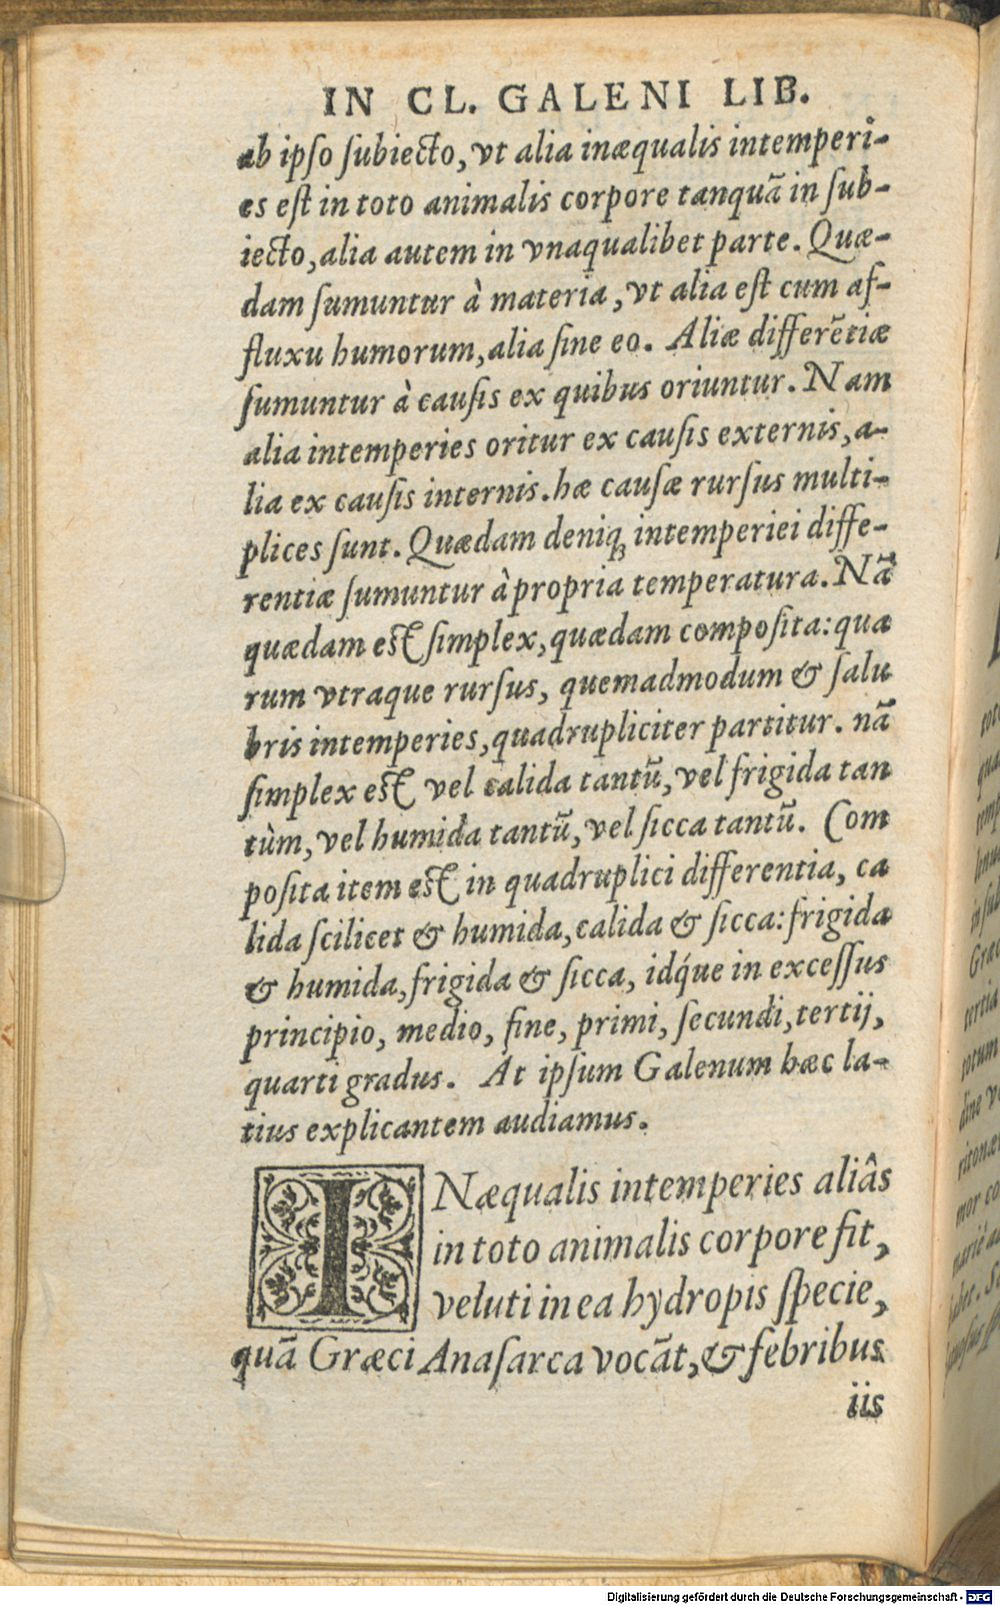 IN CL. GALENI LIB.
ab ipso subiecto, vt alia inæqualis intemperi-
es est in toto animalis corpore tanquā in sub-
iecto, alia autem in vnaqualibet parte. Quæ-
dam sumuntur à materia, vt alia est cum af-
fluxu humorum, alia sine eo. Aliæ differētiæ
sumuntur à causis ex quibus oriuntur. Nam
alia intemperies oritur ex causis externis, a-
lia ex causis internis. hæ causæ rursus multi-
plices sunt. Quædam deniq; intemperiei diffe-
rentiæ sumuntur à propria temperatura. Nā
quædam est simplex, quædam composita: qua
rum vtraque rursus, quemadmodum & salu
bris intemperies, quadrupliciter partitur. nā
simplex est vel calida tantū, vel frigida tan
tùm, vel humida tantū, vel sicca tantū. Com
posita item est in quadruplici differentia, ca
lida scilicet & humida, calida & sicca: frigida
& humida, frigida & sicca, idq́ue in excessus
principio, medio, fine, primi, secundi, tertij,
quarti gradus. At ipsum Galenum hæc la-
tius explicantem audiamus.
INæqualis intemperies aliâs
in toto animalis corpore fit,
veluti in ea hydropis specie,
quā Græci Anasarca vocāt, & febribus
iis
Digitalisierung gefördert durch die Deutsche Forschungsgemeinschaft - DFG